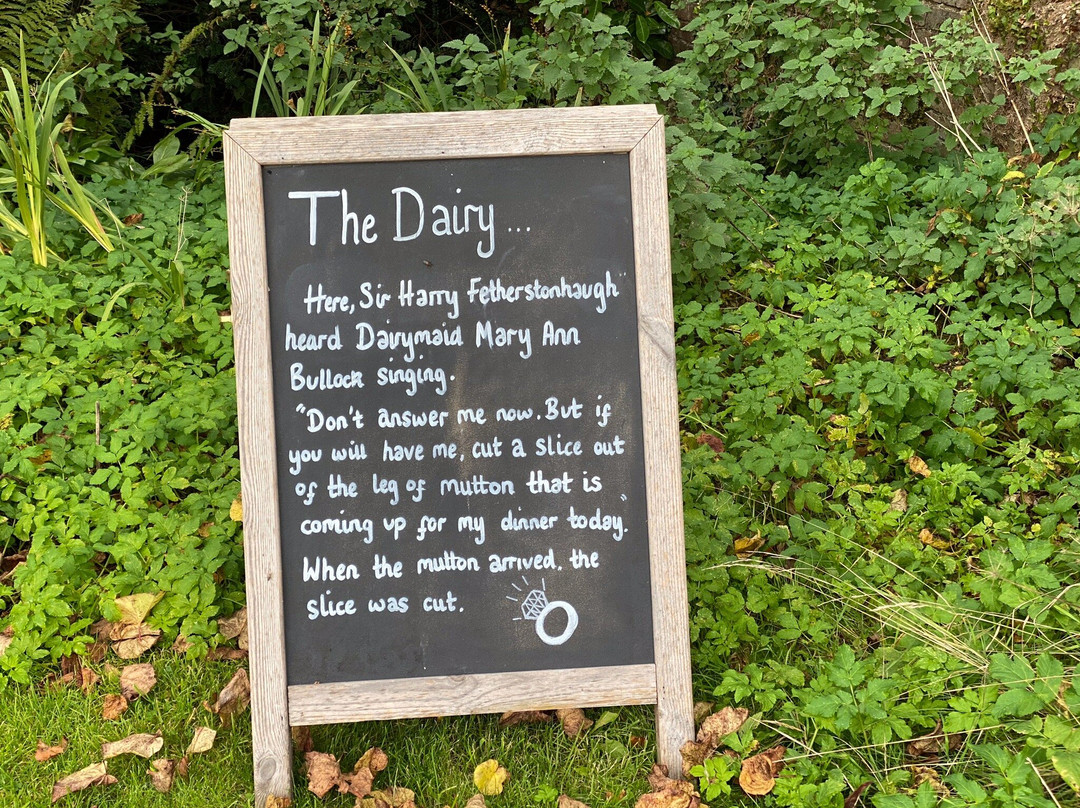 The Dairy...
Here, Sir Harry Fetherstonhaugh
heard Dairymaid Mary Ann
Bullock singing.
"Don't answer me now. But if
you will have me, cut a slice out
of the leg of mutton that is
coming up for my dinner today."
When the mutton arrived, the
slice was cut.